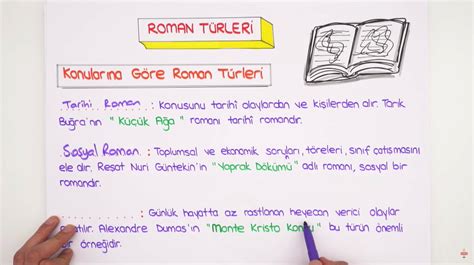 ROMAN TÜRLERİ
Konularına Göre Roman Türleri
Tarihi Roman : Konusunu tarihî olaylardan ve kişilerden alır. Tarık
Buğra'nın "Küçük Ağa" romanı tarihî romandır.
Sosyal Roman : Toplumsal ve ekonomik sorunları, töreleri, sınıf çatışmasını
ele alır. Reşat Nuri Güntekin'in "Yaprak Dökümü" adlı romanı, sosyal bir
romandır.
.................... : Günlük hayatta az rastlanan heyecan verici olaylar
Alexandre Dumas'ın "Monte Kristo Kontu" bu türün önemli
bir örneğidir.